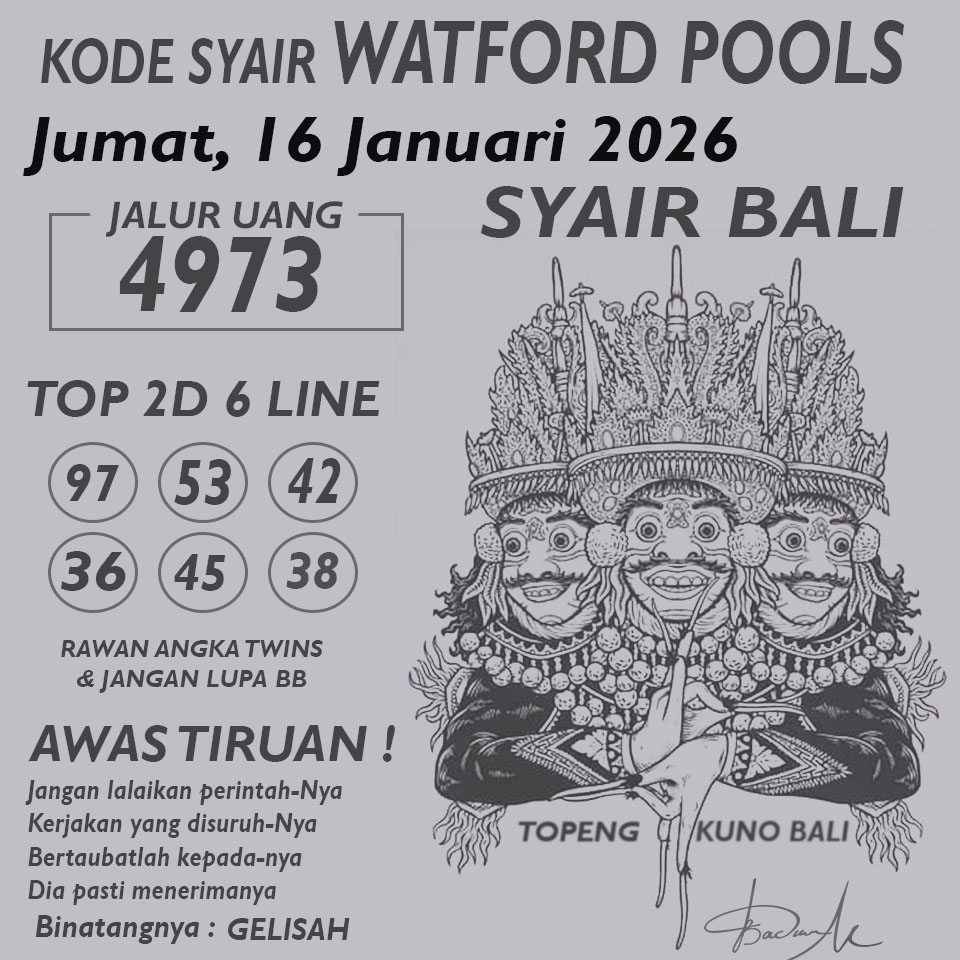 KODE SYAIR WATFORD POOLS
Jumat, 16 Januari 2026
SYAIR BALI
JALUR UANG
4973
TOP 2D 6 LINE
97 53 42
36 45 38
RAWAN ANGKA TWINS
& JANGAN LUPA BB
AWAS TIRUAN !
Jangan lalaikan perintah-Nya
Kerjakan yang disuruh-Nya
Bertaubatlah kepada-nya
Dia pasti menerimanya
Binatangnya : GELISAH
TOPENG KUNO BALI